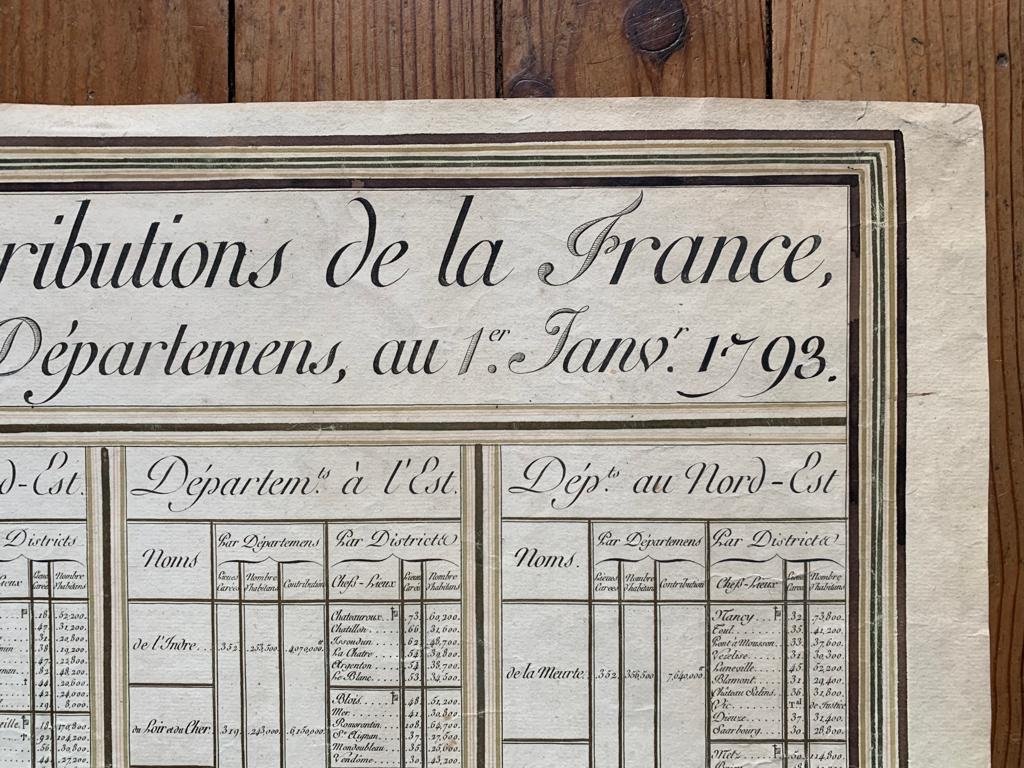 ributions de la France,
Départemens, au 1.er Janv.r 1793.
d-Est.
Districts
Lieux
Nombre d'habitans
.18. .52,200.
.47. .31,200.
.31. .20,800.
.38. .19,200.
.47. .22,800.
.82. .48,200.
.44. .20,600.
.42. .24,000.
.19. .8,000.
.18. .170,800.
.92. .104,200.
.56. .50,800.
.44. .27,200.
Départem.ts à l'Est.
Noms
Par Départemens
Par Districts
Lieues Carées
Nombre d'habitans
Contribution
Chefs-Lieux
Lieues Carées
Nombre d'habitans
de l'Indre. . . .352. .253,500. .4,070,000.
Chateauroux. .73. .60,200.
Chatillon. . . . .66. .31,600.
Issoudun. . . . .62. .48,700.
La Chatre. . . .54. .39,800.
Argenton. . . . .54. .38,700.
Le Blanc. . . . .53. .34,500.
du Loir et du Cher. .319. .243,000. .6,150,000.
Blois. . . . . .48. .51,200.
Mer. . . . . . .41. .30,800.
Romorantin. . .108. .64,700.
St. Aignan. . . .37. .27,500.
Mondoubleau. . . .35. .25,600.
Vendôme. . . . .30. .43,200.
Dép.ts au Nord-Est
Noms.
Par Départemens
Par Districts
Lieues Carées
Nombre d'habitans
Contribution
Chefs-Lieux
Lieues Carées
Nombre d'habitans
de la Meurte. .352. .356,500. 7,640,000.
Nancy. . . . .32. .73,800.
Toul. . . . . .35. .41,200.
Pont à Mousson. .33. .37,600.
Vézelise. . . . .31. .30,300.
Luneville. . . .45. .52,200.
Blamont. . . . .31. .29,400.
Château Salins. .36. .31,800.
Vic. . . . T.al de Justice
Dieuze. . . . .37. .31,400.
Saarbourg. . . .30. .28,800.
Metz. . . . . .50. .114,800.